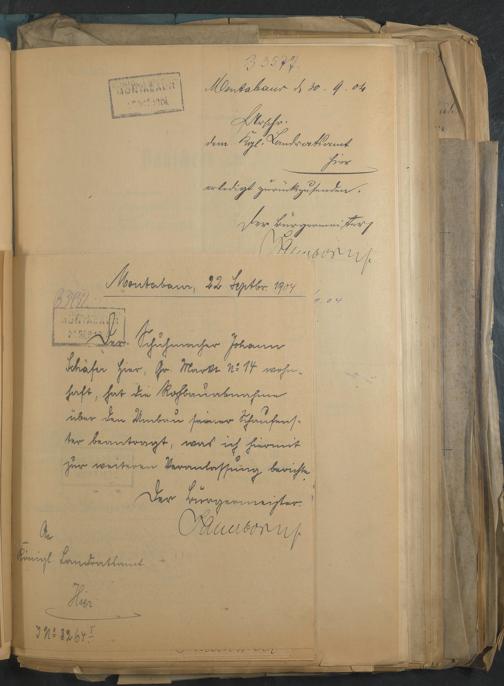 B 3577.
MONTABAUR
Montabaur d 30. 9. 04
Urschr.
dem Kgl. Landratsamt
hier
erledigt zurückzusenden.
Der Bürgermeister
Montabaur, 22 Septbr. 1904
MONTABAUR
Der Schuhmacher Johann
Schäfer hier, Gr. Markt No 14 wohn-
haft, hat die Rohbauabnahme
über den Umbau seiner Schaufens-
ter beantragt, was ich hiermit
zur weiteren Veranlassung berichte.
Der Bürgermeister.
An
Königl Landratsamt
Hier